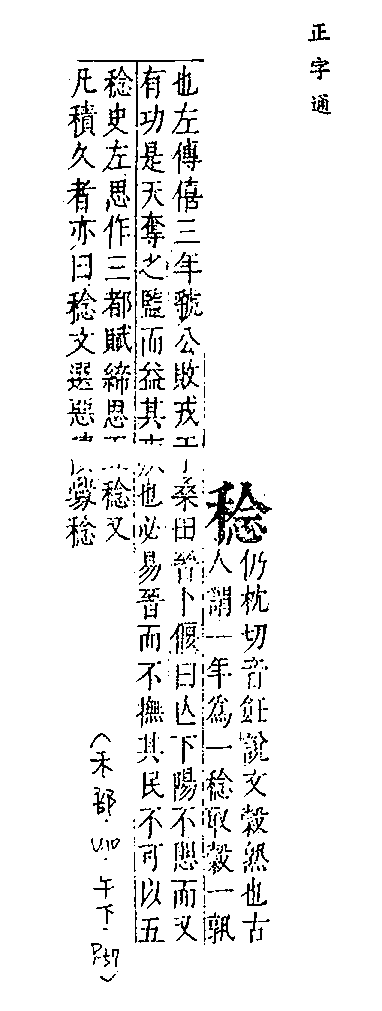 正字通
稔
仍枕切音飪說文穀熟也古
人謂一年為一稔取穀一熟
也左傳僖三年虢公敗戎于桑田晉卜偃曰亾下陽不懼而又
有功是天奪之監而益其疾也必易晉而不撫其民不可以五
稔史左思作三都賦締思稔又
凡積久者亦曰稔文選惡積釁稔
(禾部.U10.午下.P.57)